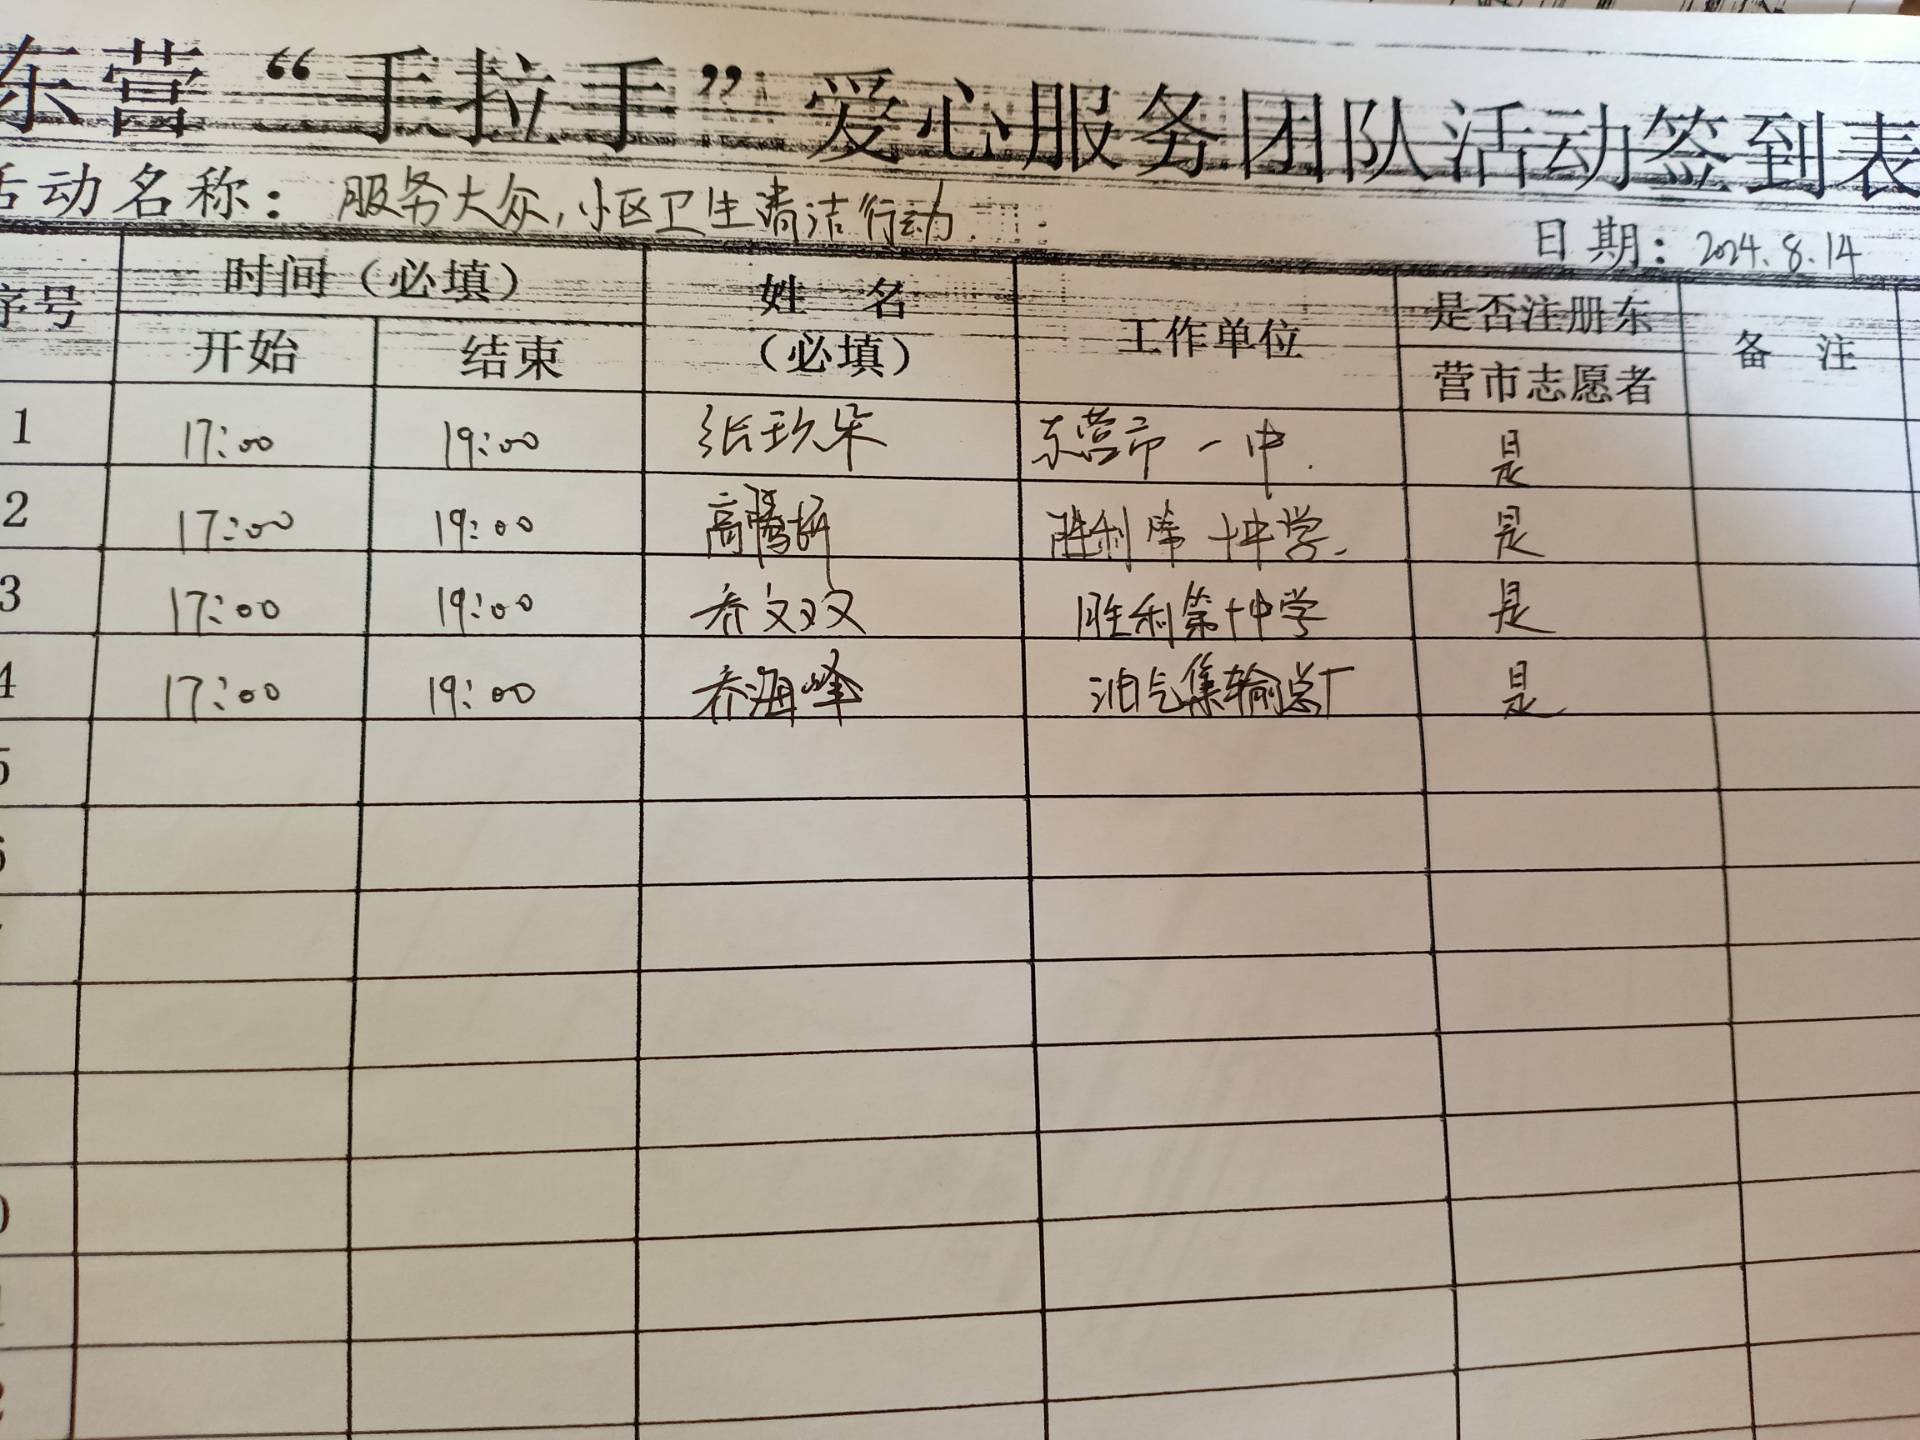 东营“手拉手”爱心服务团队活动签到表
活动名称：服务大众，小区卫生清洁行动
日期：2024.8.14
序号 时间（必填） 姓 名（必填） 工作单位 是否注册东营市志愿者 备 注
开始 结束
1 17:00 19:00 东营市一中. 是
2 17:00 19:00 高腾妍 胜利第十中学. 是
3 17:00 19:00 乔文双 胜利第十中学 是
4 17:00 19:00 乔海峰 油气集输总厂 是
5
6